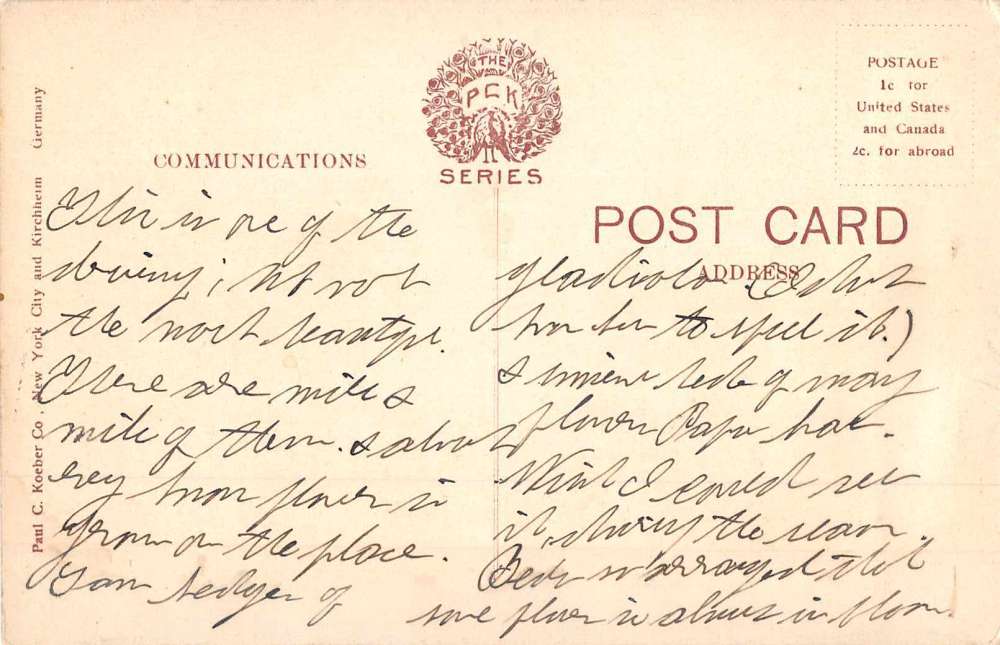 Paul C. Koeber Co., New York City and Kirchheim Germany
COMMUNICATIONS
THE
PCK
SERIES
POSTAGE
1c for
United States
and Canada
2c. for abroad
POST CARD
ADDRESS
This is one of the
driving; it not
the most beautiful.
There are miles &
mile of them. & almost
evey known flower is
grown on the place.
hedges of
gladiola. (I don't
how to spell it.)
& immense beds of many
flowers Papa has.
Wish I could see
it, during the season.
Beds so arranged that
some flower is always in bloom.